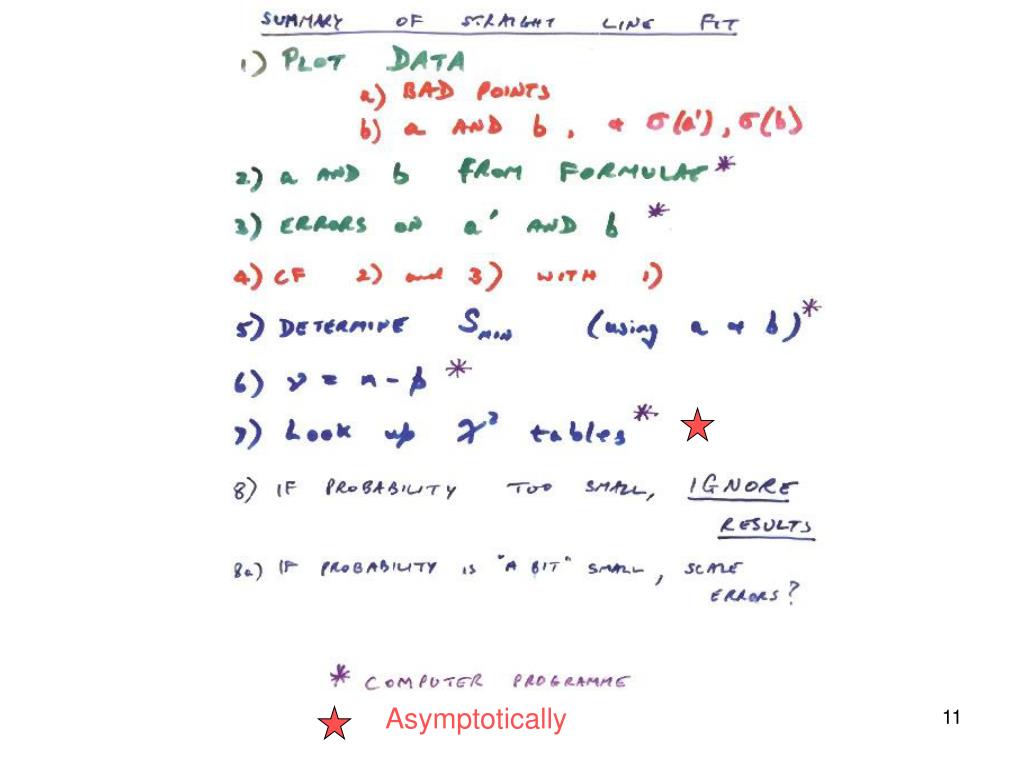 SUMMARY OF STRAIGHT LINE FIT
1) PLOT DATA
a) BAD POINTS
b) a AND b, + σ(a'), σ(b)
2) a AND b FROM FORMULAE *
3) ERRORS ON a' AND b *
4) CF 2) and 3) WITH 1)
5) DETERMINE S_MIN (using a + b) *
6) ν = n - p *
7) Look up χ² tables * ★
8) IF PROBABILITY TOO SMALL, IGNORE
RESULTS
8a) IF PROBABILITY IS "A BIT" SMALL, SCALE
ERRORS?
* COMPUTER PROGRAMME
★ Asymptotically
11